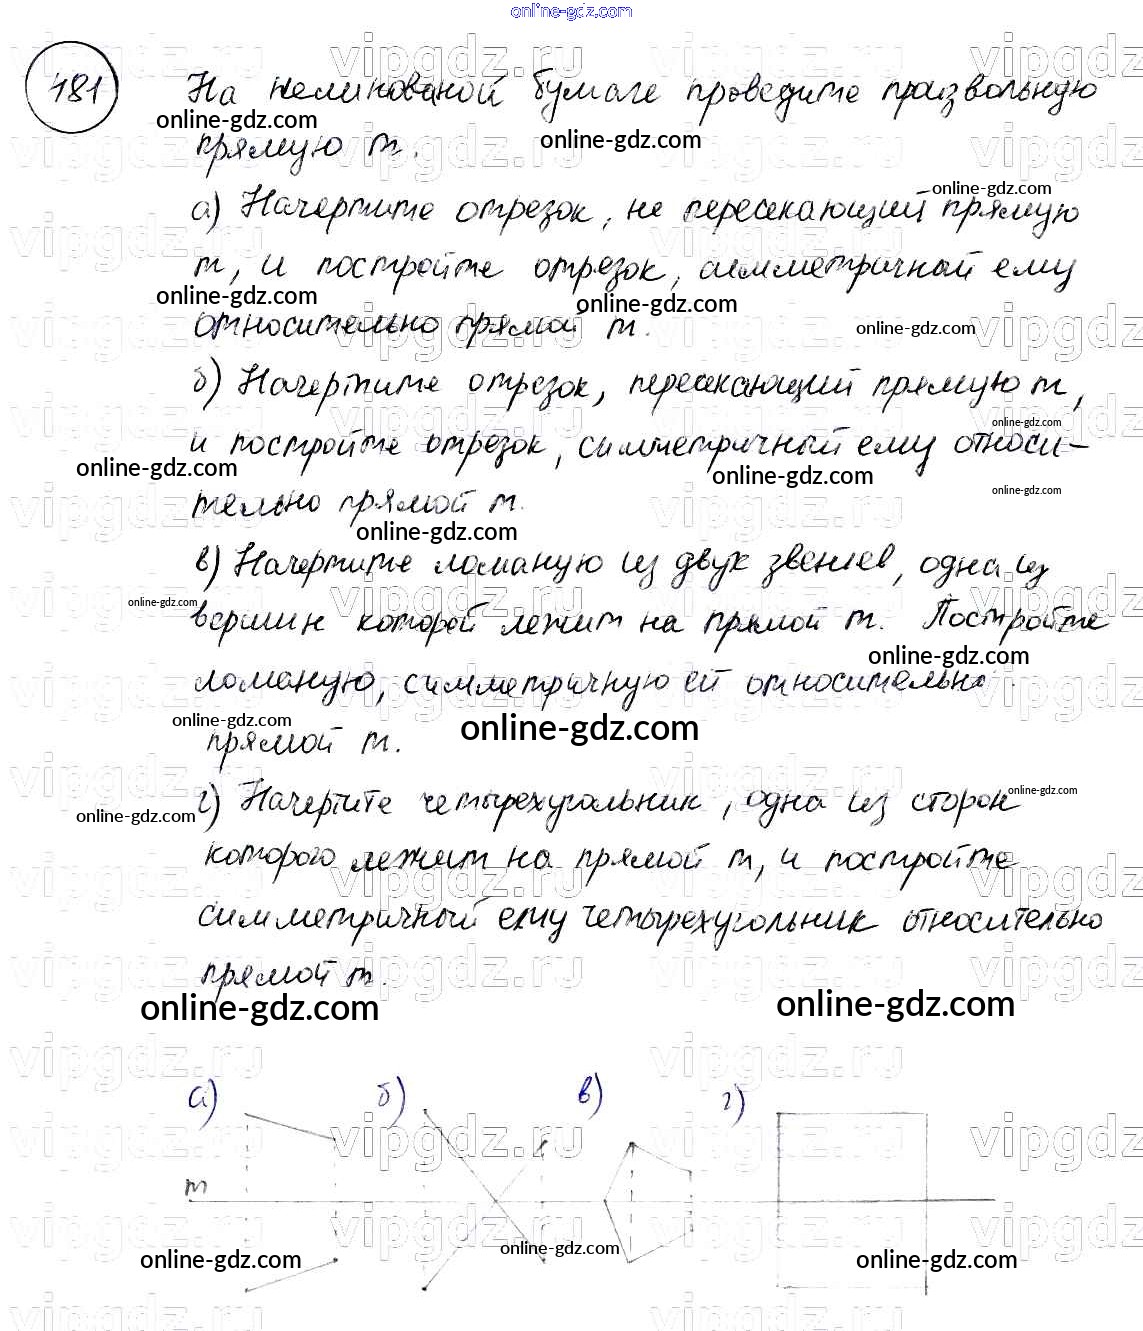 online-gdz.com
481
На нелинованой бумаге проведите произвольную
прямую m.
а) Начертите отрезок, не пересекающий прямую
m, и постройте отрезок, симметричный ему
относительно прямой m.
б) Начертите отрезок, пересекающий прямую m,
и постройте отрезок, симметричный ему относи-
тельно прямой m.
в) Начертите ломаную из двух звеньев, одна из
вершин которой лежит на прямой m. Постройте
ломаную, симметричную ей относительно
прямой m.
г) Начертите четырехугольник, одна из сторон
которого лежит на прямой m, и постройте
симметричный ему четырехугольник относительно
прямой m.
а) б) в) г)
m